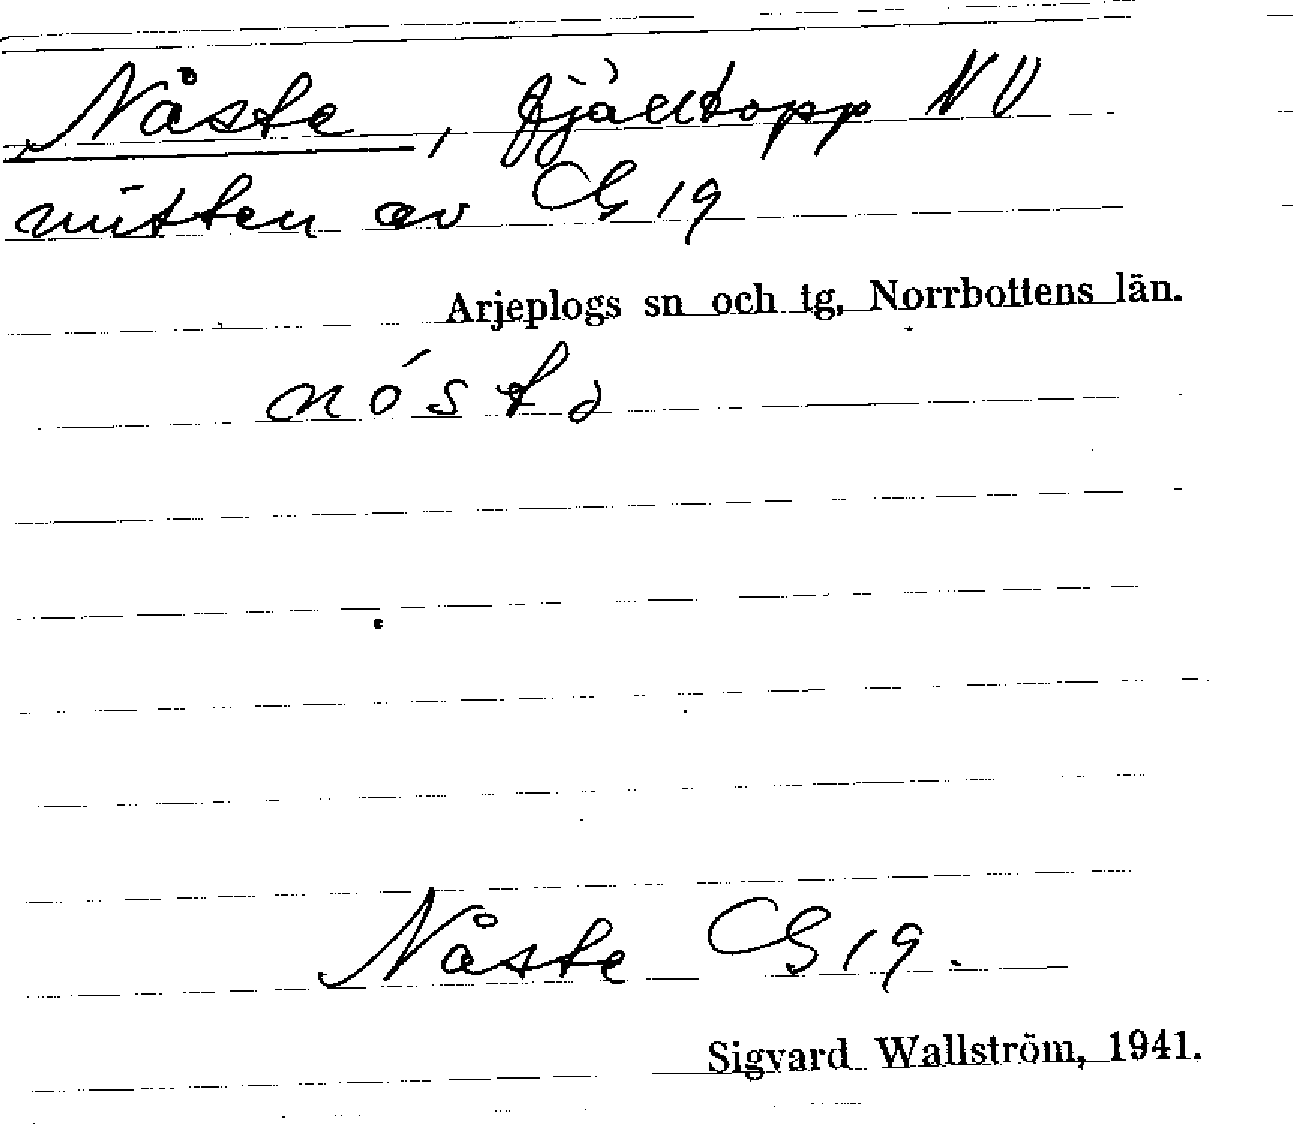 Nåste, fjälltopp NV
mitten av G 19
Arjeplogs sn och tg, Norrbottens län.
Nåste G 19.
Sigvard Wallström, 1941.